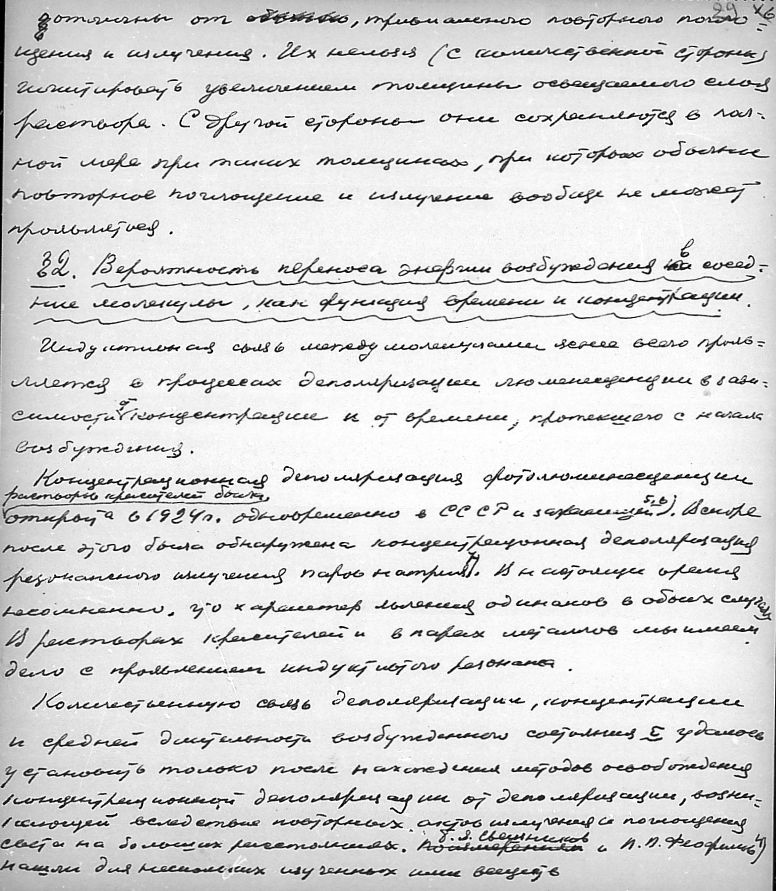 отличны от обычного, тривиального повторного погло-
щения и излучения. Их нельзя (с количественной стороны)
имитировать увеличением толщины освещаемого слоя
раствора. С другой стороны они сохраняются в пол-
ной мере при таких толщинах, при которых обычные
повторное поглощение и излучение вообще не может
проявляться.
32. Вероятность переноса энергии возбуждения в сосед-
ние молекулы, как функция времени и концентрации.
Индуктивная связь между молекулами яснее всего прояв-
ляется в процессах деполяризации люминесценции в зави-
симости от концентрации и от времени, протекшего с начала
возбуждения.
Концентрационная деполяризация фотолюминесценции
растворов красителей была
открыта в 1924 г. одновременно в СССР и заграницей 5,6). Вскоре
после этого была обнаружена концентрационная деполяризация
резонансного излучения паров натрия. В настоящее время
несомненно, что характер явления одинаков в обоих случаях
В растворах красителей и в парах металлов мы имеем
дело с проявлением индуктивного резонанса.
Количественную связь деполяризации, концентрации
и средней длительности возбужденного состояния τ удалось
установить только после нахождения методов освобождения
концентрационной деполяризации от деполяризации, возни-
кающей вследствие повторных актов излучения и поглощения
света на больших расстояниях. Б.Я. Свешников и П.П. Феофилов
нашли для нескольких изученных ими веществ